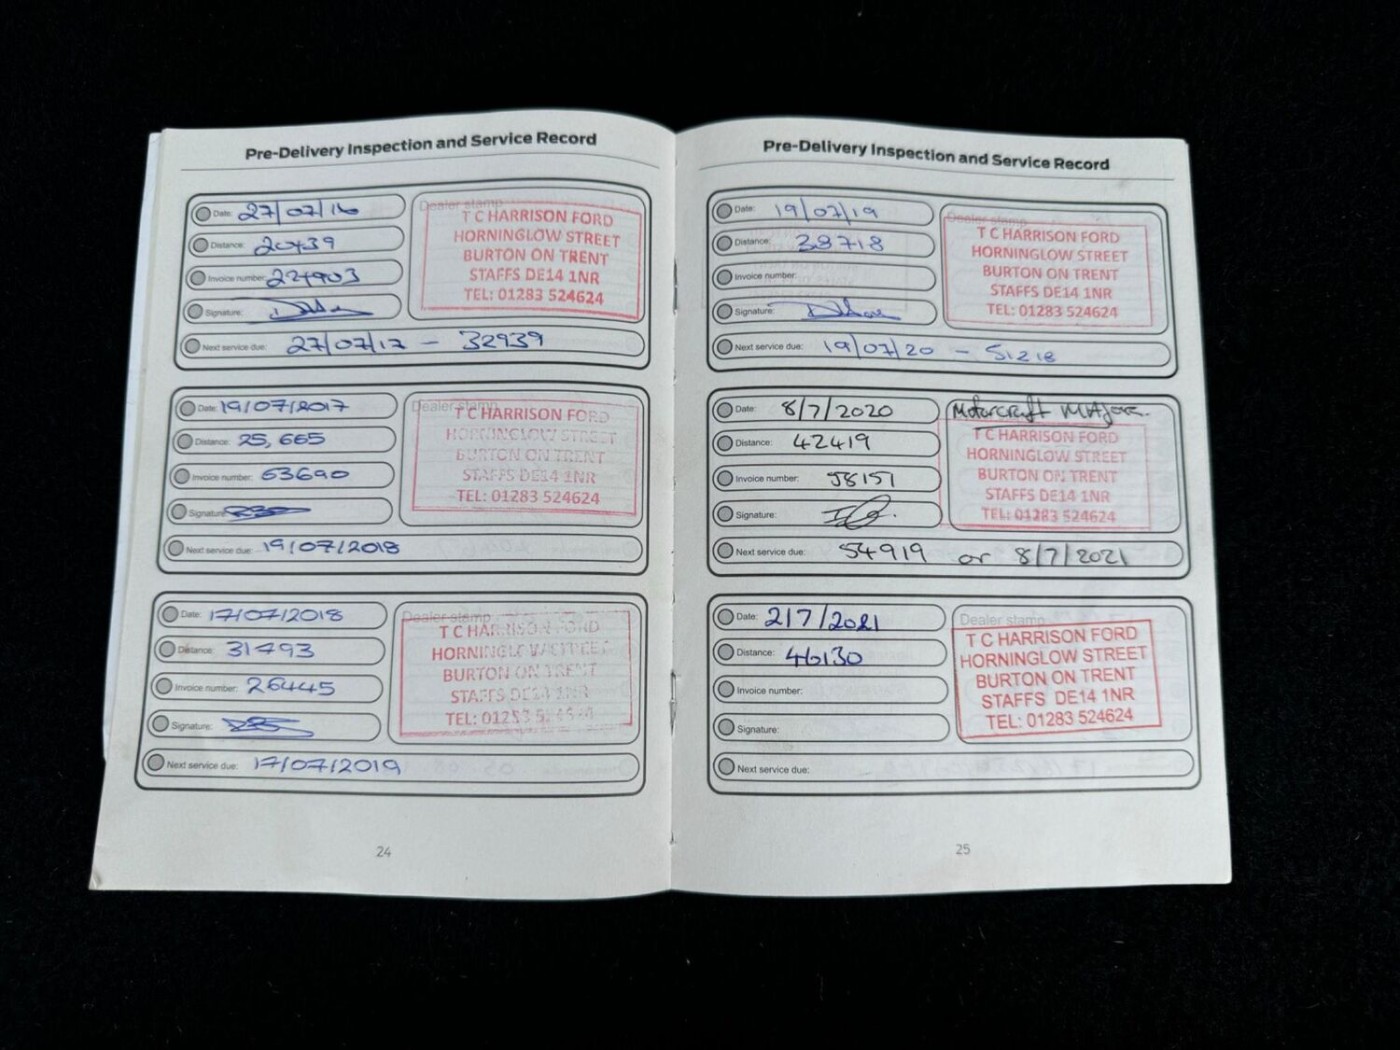 Pre-Delivery Inspection and Service Record
Date: 27/07/16
Distance: 20439
Invoice number: 224903
Signature:
Dealer stamp
T C HARRISON FORD
HORNINGLOW STREET
BURTON ON TRENT
STAFFS DE14 1NR
TEL: 01283 524624
Next service due: 27/07/17 - 32939
Date: 19/07/2017
Distance: 25,665
Invoice number: 63690
Signature:
Dealer stamp
T C HARRISON FORD
HORNINGLOW STREET
BURTON ON TRENT
STAFFS DE14 1NR
TEL: 01283 524624
Next service due: 19/07/2018
Date: 17/07/2018
Distance: 31493
Invoice number: 26445
Signature:
Dealer stamp
T C HARRISON FORD
HORNINGLOW STREET
BURTON ON TRENT
STAFFS DE14 1NR
TEL: 01283 524624
Next service due: 17/07/2019
24
Pre-Delivery Inspection and Service Record
Date: 19/07/19
Distance: 38718
Invoice number:
Signature:
Dealer stamp
T C HARRISON FORD
HORNINGLOW STREET
BURTON ON TRENT
STAFFS DE14 1NR
TEL: 01283 524624
Next service due: 19/07/20 - 51218
Date: 8/7/2020
Distance: 42419
Invoice number: J8151
Signature:
Motorcraft MAJor.
T C HARRISON FORD
HORNINGLOW STREET
BURTON ON TRENT
STAFFS DE14 1NR
TEL: 01283 524624
Next service due: 54919 or 8/7/2021
Date: 2/7/2021
Distance: 46130
Invoice number:
Signature:
Dealer stamp
T C HARRISON FORD
HORNINGLOW STREET
BURTON ON TRENT
STAFFS DE14 1NR
TEL: 01283 524624
Next service due:
25